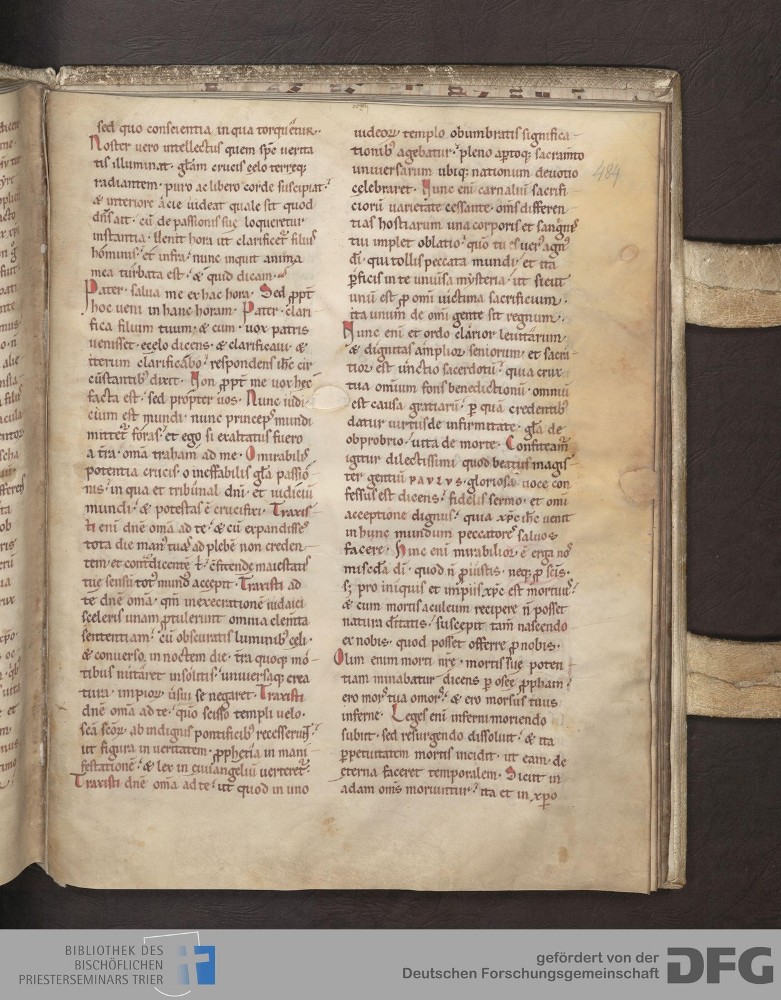 sed quo conscientia in qua torquetur.
Noster vero intellectus quem spc verita
tis illuminat. glam crucis celo terreq;
radiantem. puro ac libero corde suscipiat.
& interiore acie uideat quale sit quod
dns ait. cu de passionis sue loqueretur
instantia. Uenit hora ut clarificet filius
hominis. et infra. nunc inquit anima
mea turbata est. & quid dicam.
Pater. salua me ex hac hora. Sed propt
hoc ueni in hanc horam. Pater. clari
fica filium tuum. & cum uox patris
uenisset. e celo dicens. & clarificaui. &
iterum clarificabo. respondens ihc cir
custantib; dixit. Non propt me uox hec
facta est. sed propter uos. Nunc iudi
cium est mundi. nunc princeps mundi
mittet foras. et ego si exaltatus fuero
a tra. oma traham ad me. O mirabilis
potentia crucis. o ineffabilis gla passio
nis. in qua et tribunal dni. et iudiciu
mundi. & potestas e crucifixi. Traxis
ti eni dne oma ad te. & cu expandisses
tota die manus tuas ad plebe non creden
tem et contradicente t. cfitende maiestatis
tue sensu totus mund accepit. Traxisti ad
te dne oma. qm in execratione iudaici
sceleris unam protulerunt omnia elemta
sententiam. cu obscuratis luminib; celi.
& conuerso in noctem die. tra quoq; mo
tibus nutaret insolitis. uniuersaq; crea
tura impior usui se negaret. Traxisti
dne oma ad te. quo scisso templi uelo.
sca scor ab indignis pontificib; recesserunt.
ut figura in ueritatem. prophetia in mani
festatione. & lex in euuangeliu uerteret.
Traxisti dne oma ad te. ut quod in uno
iudeor templo obumbratis significa
tionib; agebatur. pleno aptoq; sacramto
uniuersarum ubiq; nationum deuotio
celebraret. Nunc eni carnaliu sacrifi
cioru uarietate cessante. oms differen
tias hostiarum una corporis et sanguis
tui implet oblatio. quo tu es uerus agnus
di. qui tollis peccata mundi. et ita
perficis in te uniuersa mysteria. ut sicut
unu est pro omi uictima sacrificium.
ita unum de omi gente sit regnum.
Nunc eni et ordo clarior leuitarum.
& dignitas amplior seniorum. et sacra
tior est unctio sacerdotu. quia crux
tua omium fons benedictionu. omniu
est causa gratiaru. per qua credentib;
datur uirtus de infirmitate. gla de
obprobrio. uita de morte. Confiteamur
igitur dilectissimi quod beatus magis
ter gentiu PAULUS. gloriosa uoce con
fessus est dicens. fidelis sermo. et omi
acceptione dignus. quia xpc ihc uenit
in hunc mundum peccatores saluos
facere. Hinc eni mirabilior e erga nos
miscda di. quod n pro iustis. neq; pro scis.
s; pro iniquis et impiis xpc est mortuus.
& cum mortis aculeum recipere n posset
natura diuitatis. suscepit tam nascendo
ex nobis. quod posset offerre pro nobis.
Olim enim morti nre. mortis sue poten
tiam minabatur. dicens per osee propham.
ero mors tua o mors. & ero morsus tuus
inferne. Leges eni inferni moriendo
subiit. sed resurgendo dissoluit. & ita
perpetuitatem mortis incidit. ut eam de
eterna faceret temporalem. Sicut in
adam oms moriuntur. ita et in xpo
484
BIBLIOTHEK DES
BISCHÖFLICHEN
PRIESTERSEMINARS TRIER
gefördert von der
Deutschen Forschungsgemeinschaft
DFG